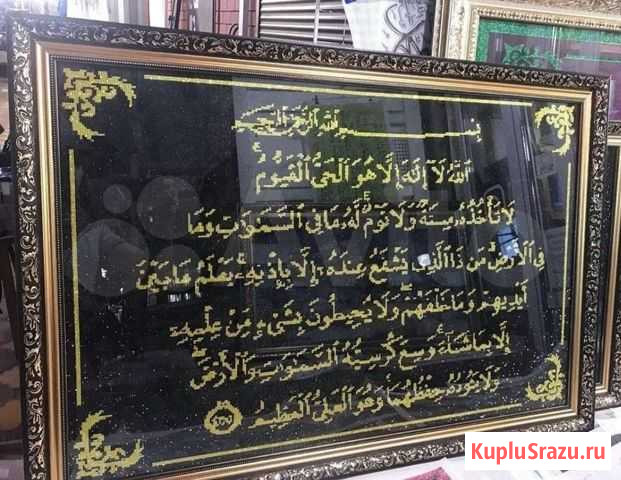 بسم الله الرحمن الرحيم
ٱللَّهُ لَآ إِلَٰهَ إِلَّا هُوَ ٱلْحَىُّ ٱلْقَيُّومُ ۚ
لَا تَأْخُذُهُۥ سِنَةٌ وَلَا نَوْمٌ ۚ لَّهُۥ مَا فِى ٱلسَّمَٰوَٰتِ وَمَا
فِى ٱلْأَرْضِ ۗ مَن ذَا ٱلَّذِى يَشْفَعُ عِندَهُۥٓ إِلَّا بِإِذْنِهِۦ ۚ يَعْلَمُ مَا بَيْنَ
أَيْدِيهِمْ وَمَا خَلْفَهُمْ ۖ وَلَا يُحِيطُونَ بِشَىْءٍ مِّنْ عِلْمِهِۦٓ
إِلَّا بِمَا شَآءَ ۚ وَسِعَ كُرْسِيُّهُ ٱلسَّمَٰوَٰتِ وَٱلْأَرْضَ ۖ
وَلَا يَـُٔودُهُۥ حِفْظُهُمَا ۚ وَهُوَ ٱلْعَلِىُّ ٱلْعَظِيمُ
Avito
KupluSrazu.ru